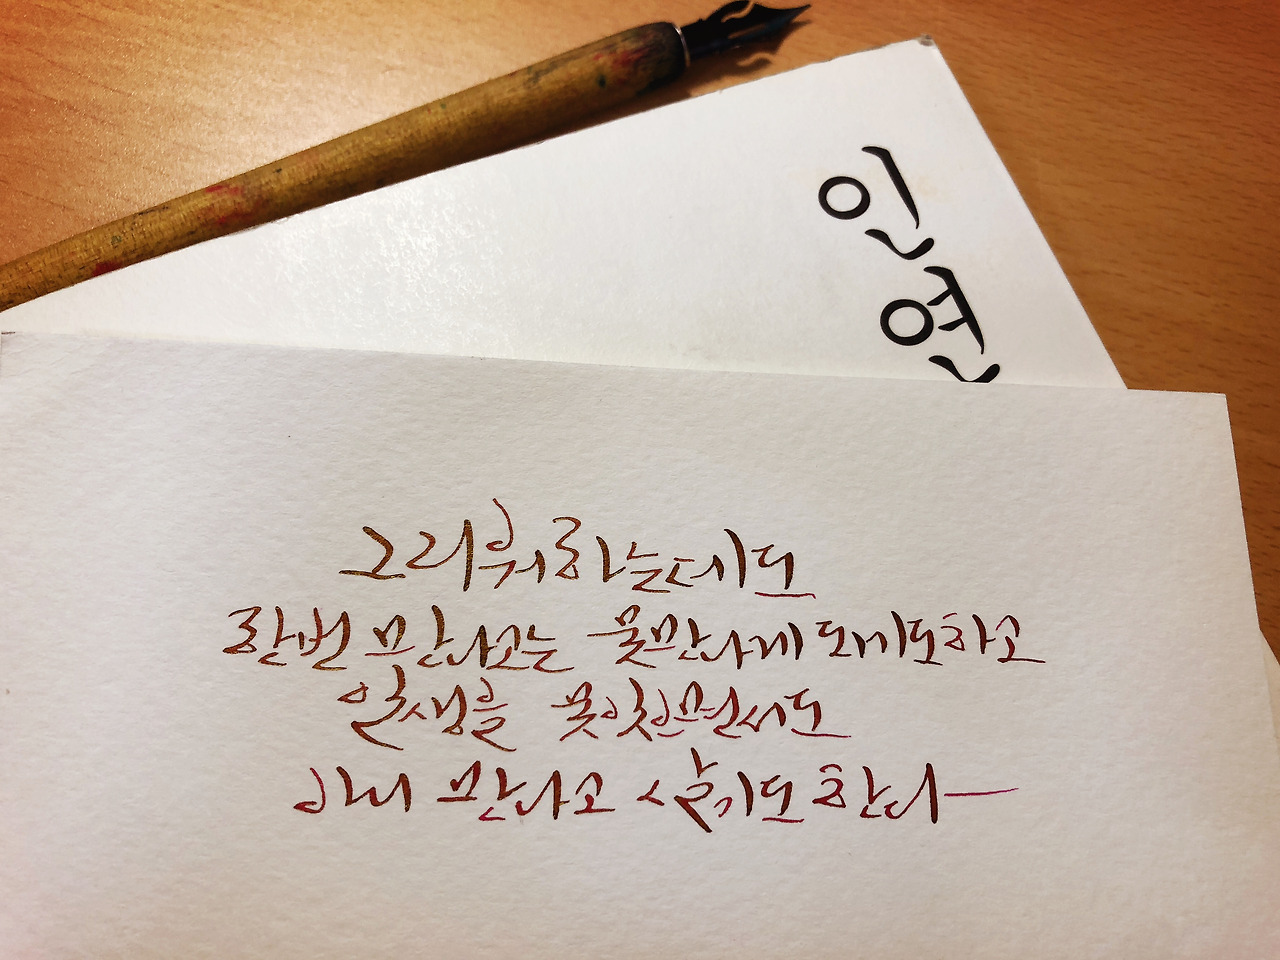 인연
그리워하는데도
한번 만나고는 못만나게 되기도하고
일생을 못잊으면서도
아니 만나고 살기도 한다